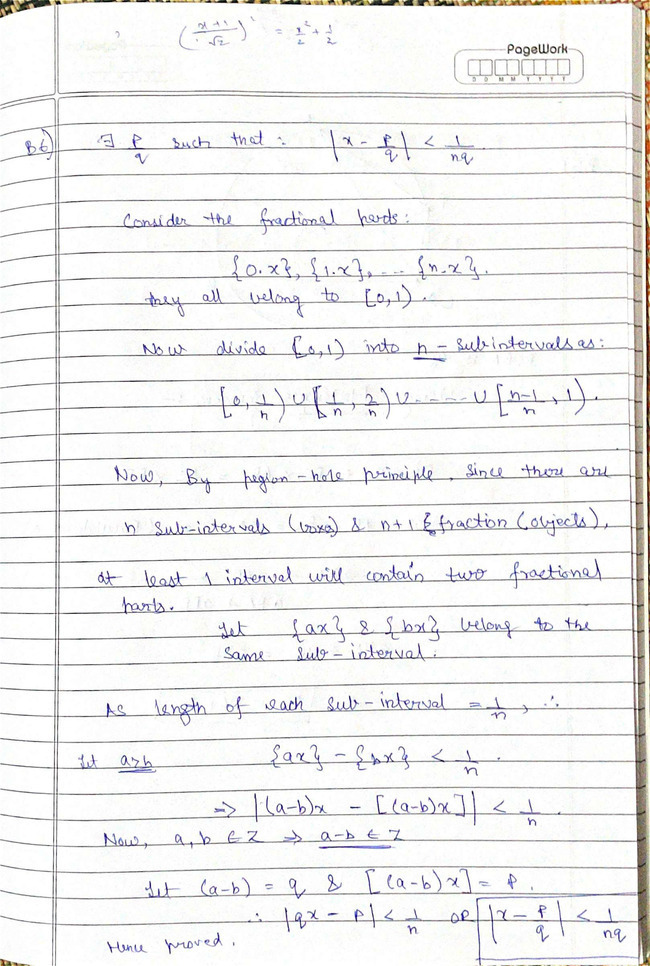 (x+1/√2)² = x²/2 + 1/2
PageWork
D D M M Y Y Y Y
B6) ∃ p/q such that : |x - p/q| < 1/nq.
Consider the fractional parts:
{0.x}, {1.x}, ... {n.x}.
they all belong to [0,1).
Now divide [0,1) into n - subintervals as:
[0, 1/n) ∪ [1/n, 2/n) ∪ ----- ∪ [n-1/n, 1).
Now, By pegion-hole principle, since there are
n sub-intervals (boxes) & n+1 fraction (objects),
at least 1 interval will contain two fractional
parts.
Let {ax} & {bx} belong to the
same sub-interval.
As length of each sub-interval = 1/n, ∴
Let a>b {ax} - {bx} < 1/n.
⇒ |(a-b)x - [(a-b)x]| < 1/n.
Now, a, b ∈ Z ⇒ a-b ∈ Z
Let (a-b) = q & [(a-b)x] = p.
∴ |qx - p| < 1/n OR |x - p/q| < 1/nq
Hence proved.